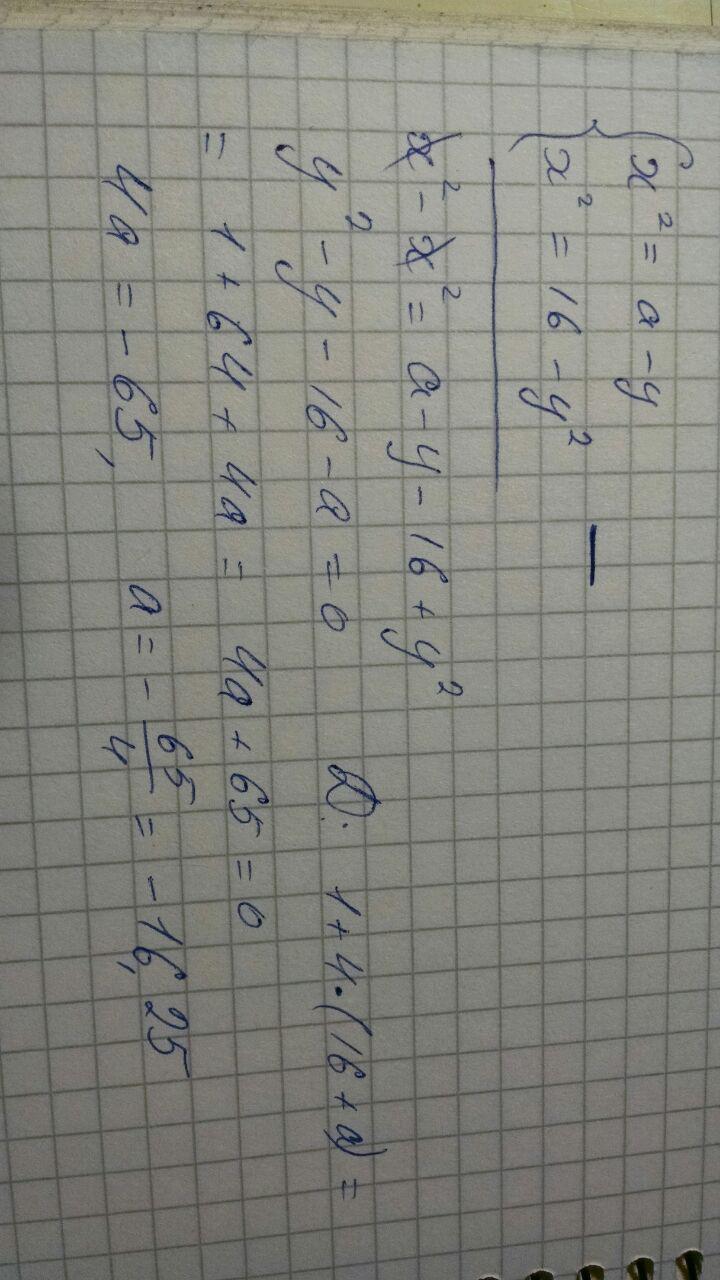 { x² = a - y
x² = 16 - y² —
x² - x² = a - y - 16 + y²
y² - y - 16 - a = 0 D: 1 + 4·(16 + a) =
= 1 + 64 + 4a = 4a + 65 = 0
4a = -65, a = - 65/4 = -16,25